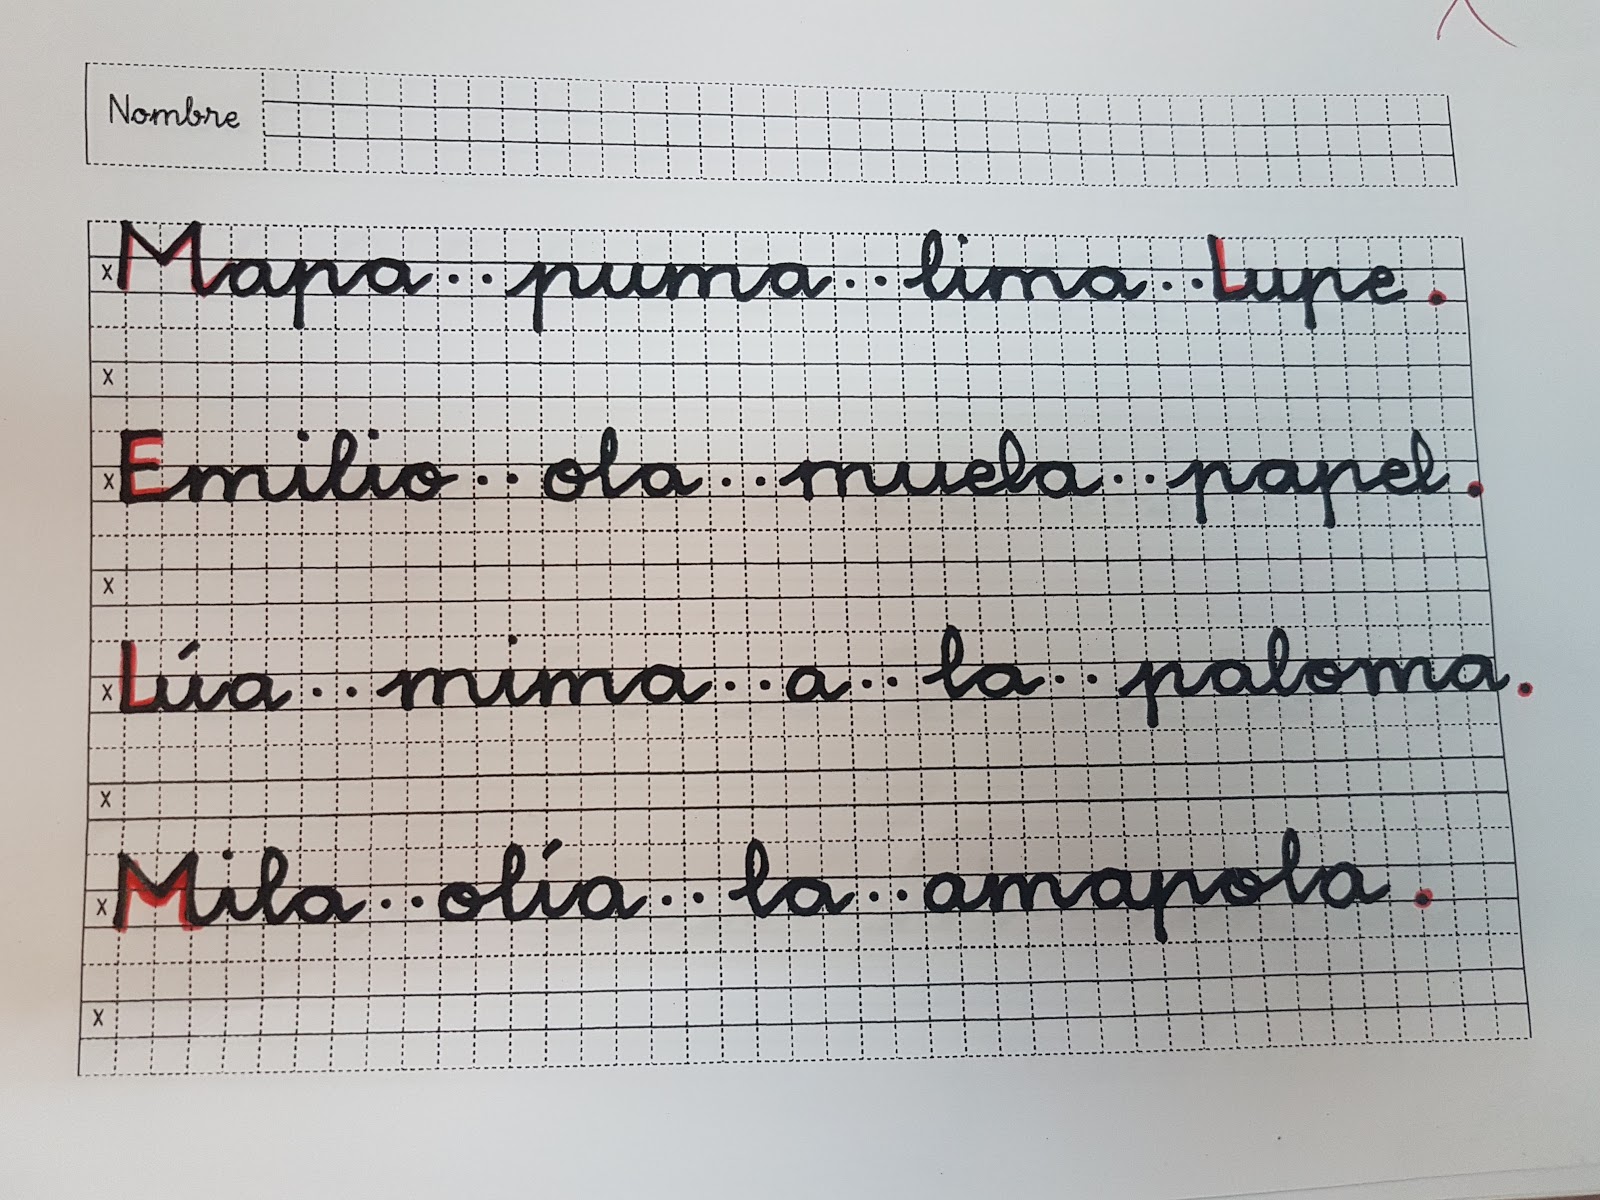 Nombre
x Mapa··puma··lima··Lupe.
x
x Emilio··ola··muela··papel.
x
x Lúa··mima··a··la··paloma.
x
x Mila··olía··la··amapola.
x